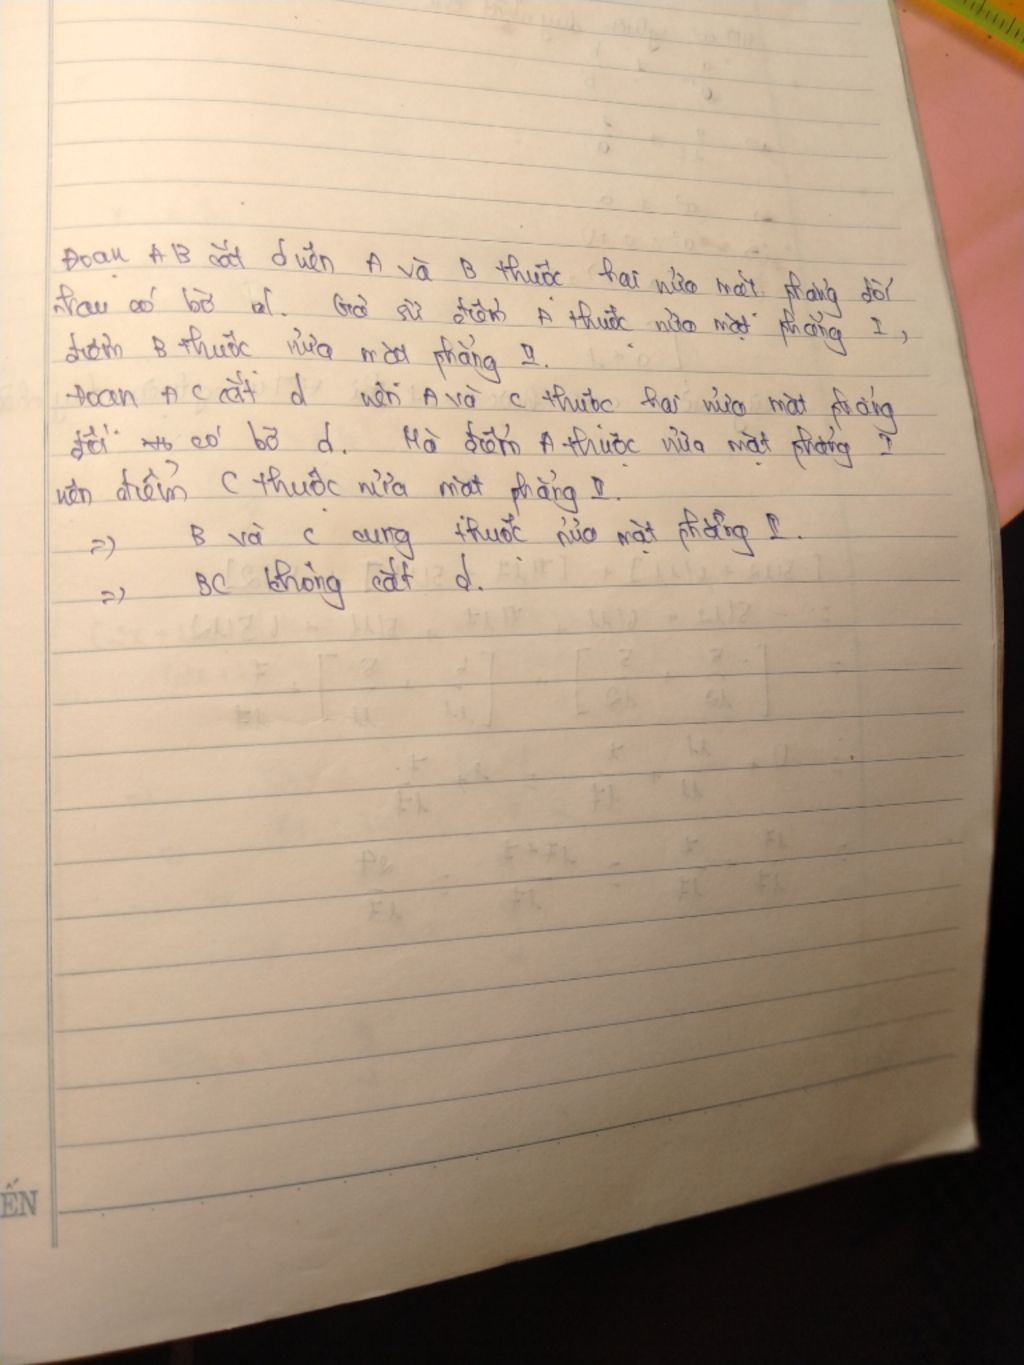 Đoạn AB cắt d nên A và B thuộc hai nửa mặt phẳng đối
nhau có bờ d. Giả sử điểm A thuộc nửa mặt phẳng I,
điểm B thuộc nửa mặt phẳng II.
Đoạn AC cắt d nên A và C thuộc hai nửa mặt phẳng
đối có bờ d. Mà điểm A thuộc nửa mặt phẳng I
nên điểm C thuộc nửa mặt phẳng II.
=> B và C cùng thuộc nửa mặt phẳng II.
=> BC không cắt d.
ẾN